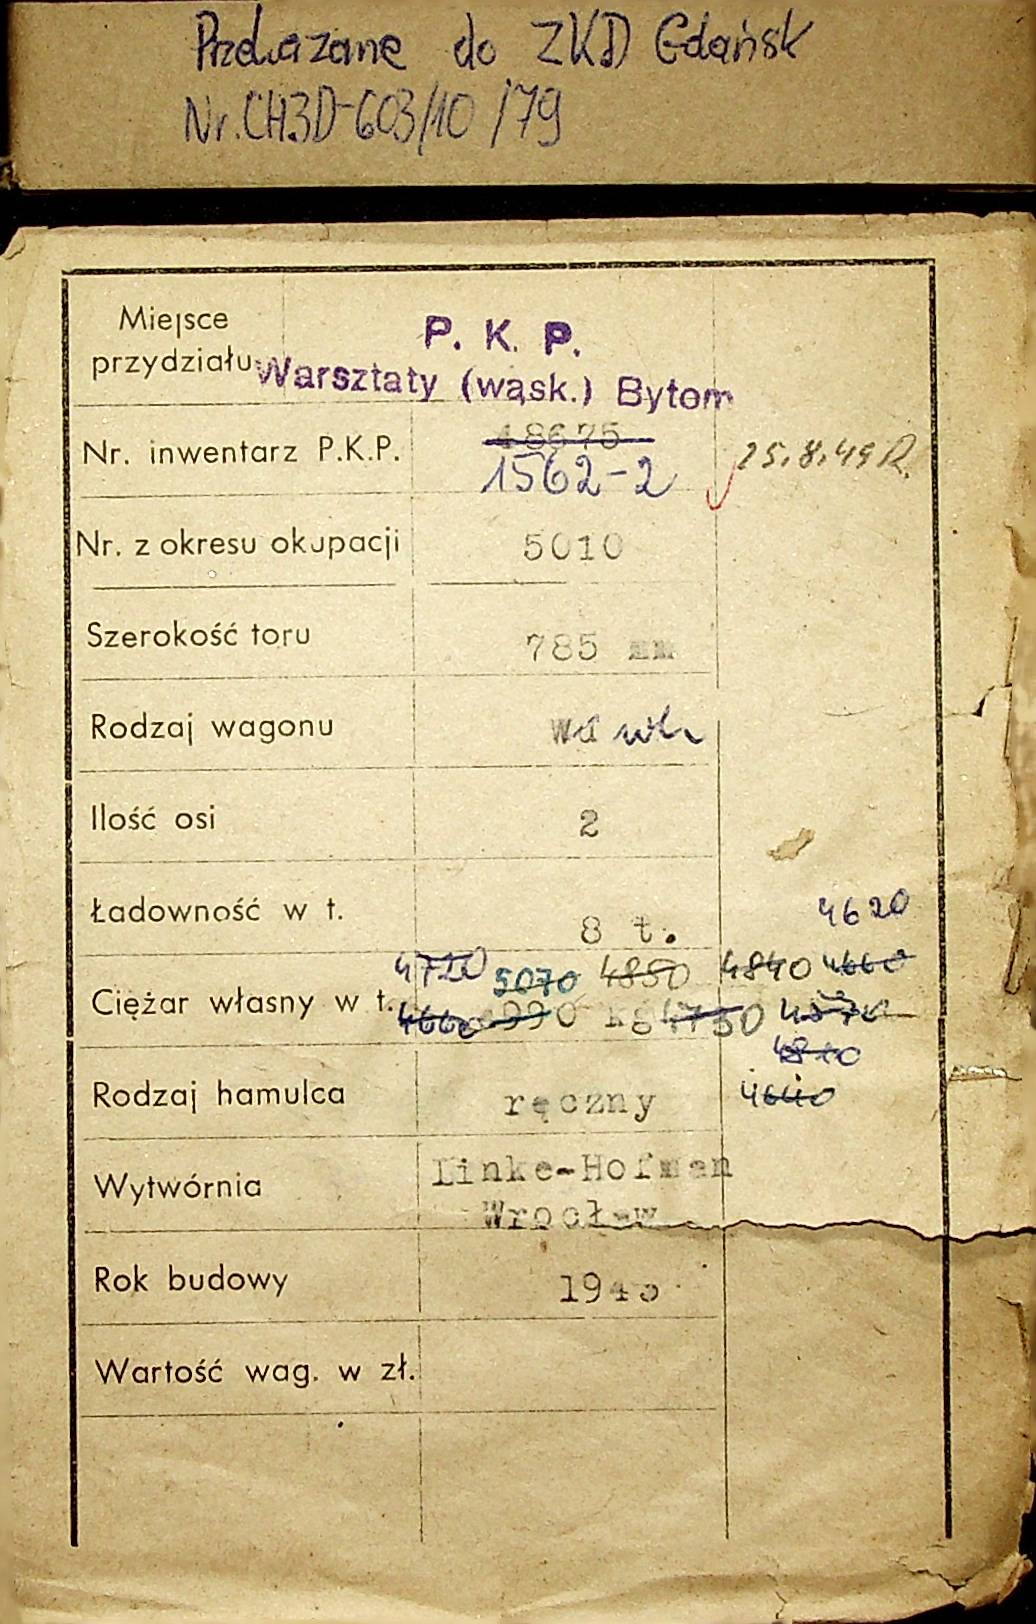 Przekazane do ZKD Gdańsk
Nr. CH3D-603/10/79
Miejsce
przydziału
P. K. P.
Warsztaty (wąsk.) Bytom
Nr. inwentarz P.K.P.
48675
1562-2
25.8.49 R.
Nr. z okresu okupacji 5010
Szerokość toru 785 mm
Rodzaj wagonu
Ilość osi 2
Ładowność w t. 8 t.
4620
4720 5070 4850 4840 4660
Ciężar własny w t. 4660 4990 kg 4750 4570
4810
Rodzaj hamulca ręczny 4640
Wytwórnia Linke-Hofman
Wrocław
Rok budowy
Wartość wag. w zł.